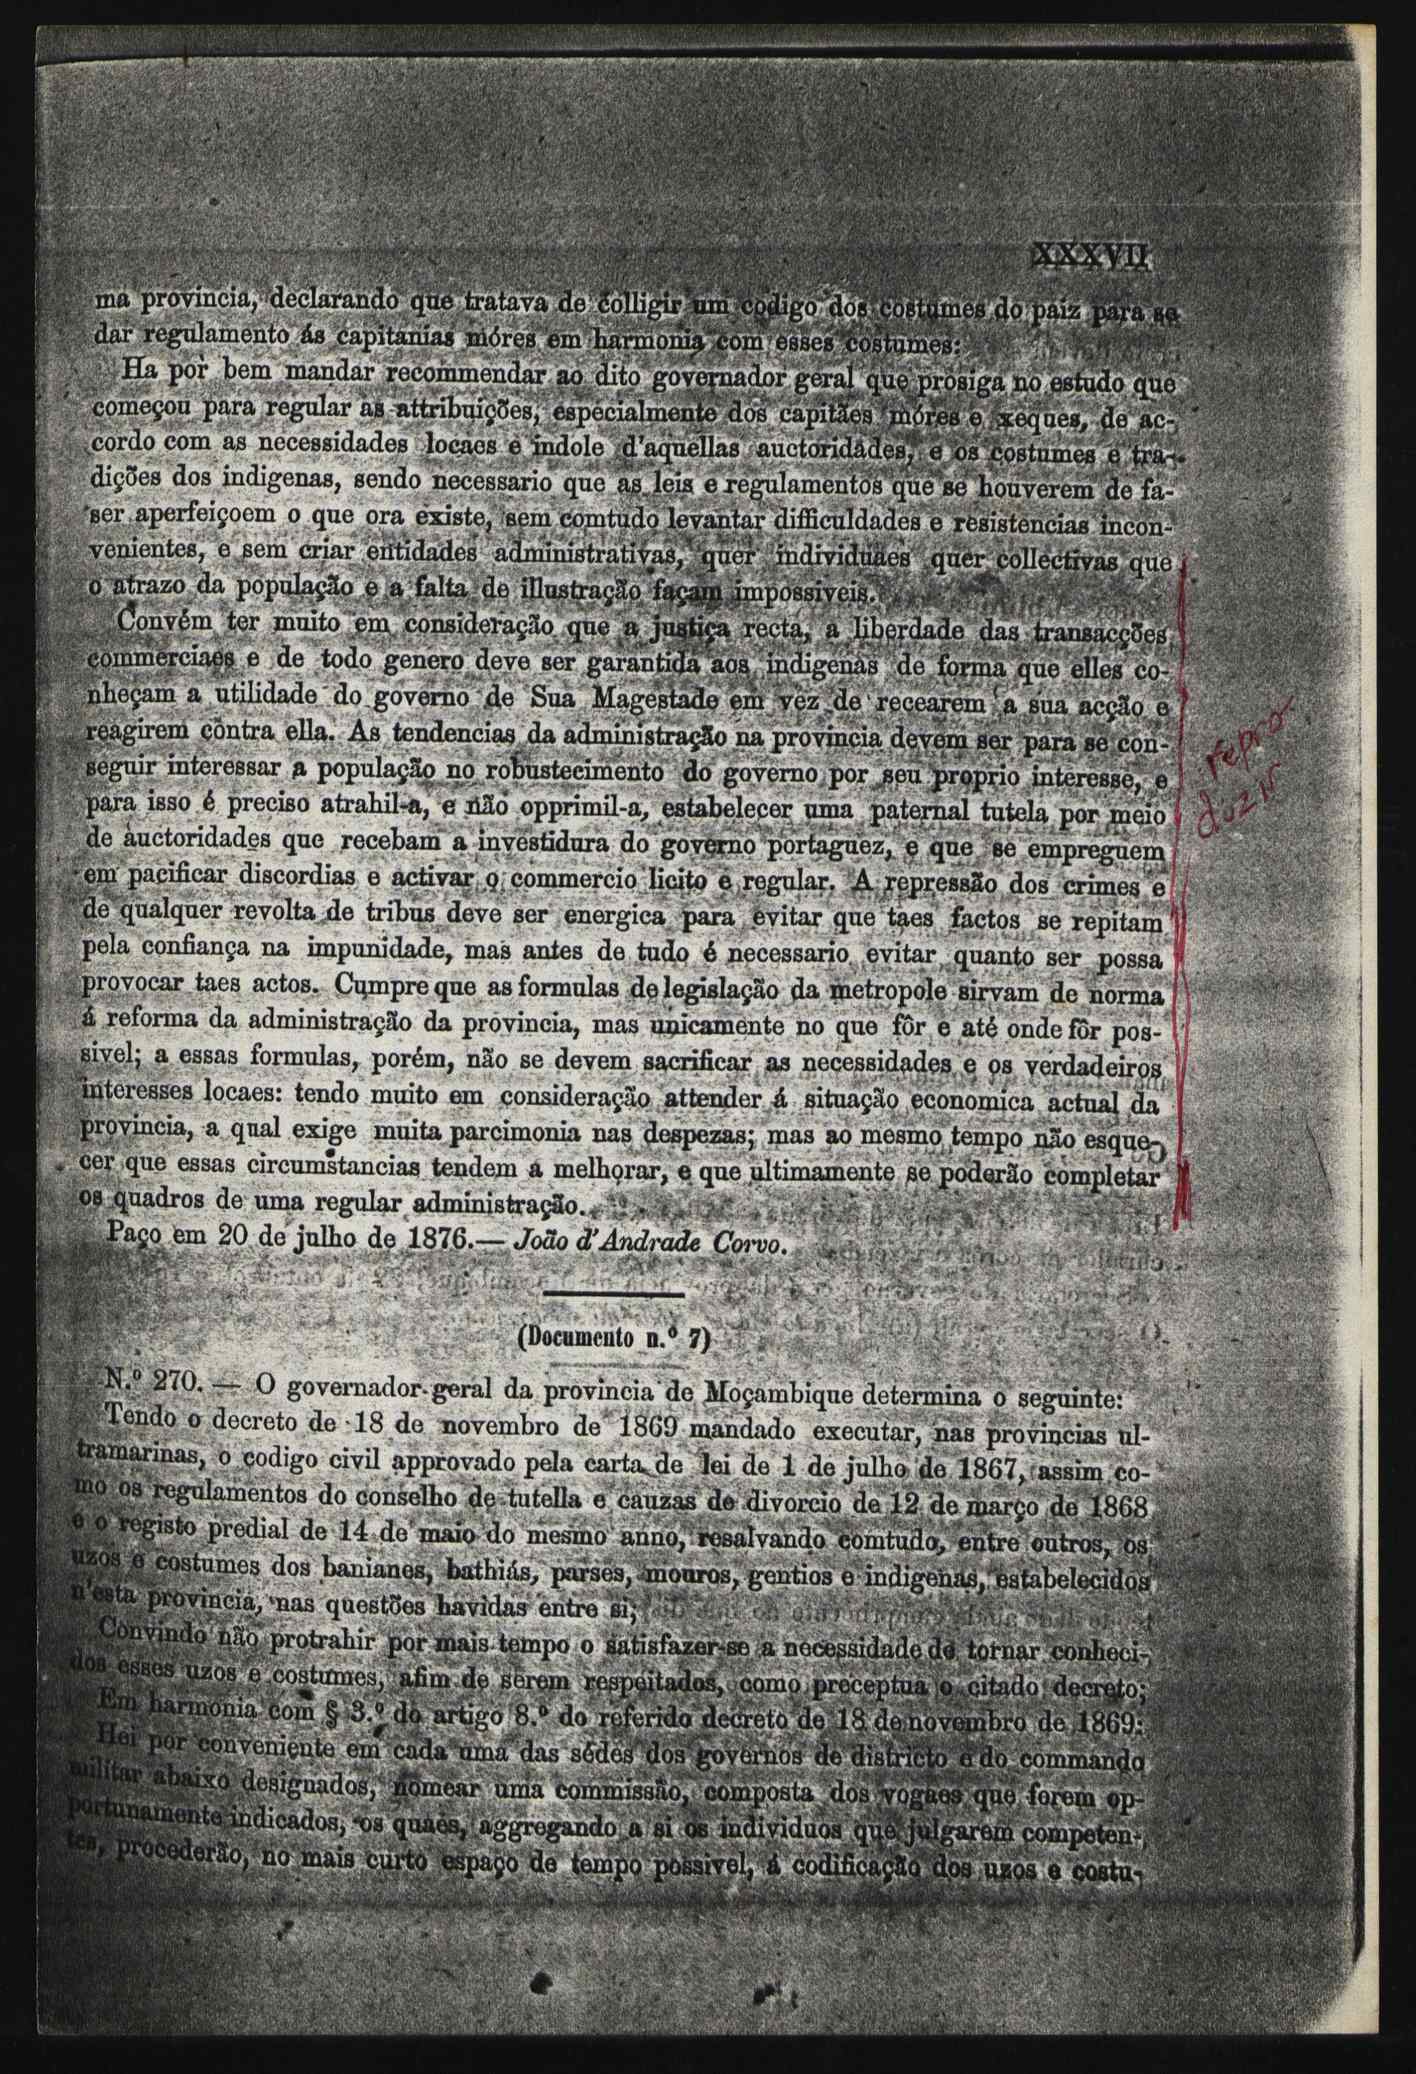 XXXVII
ma provincia, declarando que tratava de colligir um codigo dos costumes do paiz para se
dar regulamento ás capitanias móres em harmonia com esses costumes:
Ha por bem mandar recommendar ao dito governador geral que prosiga no estudo que
começou para regular as attribuições, especialmente dos capitães móres e xeques, de ac-
cordo com as necessidades locaes e indole d'aquellas auctoridades, e os costumes e tra-
dições dos indigenas, sendo necessario que as leis e regulamentos que se houverem de fa-
ser aperfeiçoem o que ora existe, sem comtudo levantar difficuldades e resistencias incon-
venientes, e sem criar entidades administrativas, quer individuaes quer collectivas que
o atrazo da população e a falta de illustração façam impossiveis.
Convém ter muito em consideração que a justiça recta, a liberdade das transacções
commerciaes e de todo genero deve ser garantida aos indigenas de forma que elles co-
nheçam a utilidade do governo de Sua Magestade em vez de recearem a sua acção e
reagirem contra ella. As tendencias da administração na provincia devem ser para se con-
seguir interessar a população no robustecimento do governo por seu proprio interesse, e
para isso é preciso atrahil-a, e não opprimil-a, estabelecer uma paternal tutela por meio
de auctoridades que recebam a investidura do governo portaguez, e que se empreguem
em pacificar discordias e activar o commercio licito e regular. A repressão dos crimes e
de qualquer revolta de tribus deve ser energica para evitar que taes factos se repitam
pela confiança na impunidade, mas antes de tudo é necessario evitar quanto ser possa
provocar taes actos. Cumpre que as formulas de legislação da metropole sirvam de norma
á reforma da administração da provincia, mas unicamente no que fôr e até onde fôr pos-
sivel; a essas formulas, porém, não se devem sacrificar as necessidades e os verdadeiros
interesses locaes: tendo muito em consideração attender á situação economica actual da
provincia, a qual exige muita parcimonia nas despezas; mas ao mesmo tempo não esque-
cer que essas circumstancias tendem a melhorar, e que ultimamente se poderão completar
os quadros de uma regular administração.
Paço em 20 de julho de 1876.— João d'Andrade Corvo.
repro
duzir
(Documento n.º 7)
N.º 270. — O governador geral da provincia de Moçambique determina o seguinte:
Tendo o decreto de 18 de novembro de 1869 mandado executar, nas provincias ul-
tramarinas, o codigo civil approvado pela carta de lei de 1 de julho de 1867, assim co-
mo os regulamentos do conselho de tutella e cauzas de divorcio de 12 de março de 1868
e o registo predial de 14 de maio do mesmo anno, resalvando comtudo, entre outros, os
uzos e costumes dos banianes, bathiás, parses, mouros, gentios e indigenas, estabelecidos
n'esta provincia, nas questões havidas entre si;
Convindo não protrahir por mais tempo o satisfazer-se a necessidade de tornar conheci-
dos esses uzos e costumes, afim de serem respeitados, como preceptua o citado decreto;
Em harmonia com § 3.º do artigo 8.º do referido decreto de 18 de novembro de 1869:
Hei por conveniente em cada uma das sédes dos governos de districto e do commando
militar abaixo designados, nomear uma commissão, composta dos vogaes que forem op-
portunamente indicados, os quaes, aggregando a si os individuos que julgarem competen-
tes, procederão, no mais curto espaço de tempo possivel, á codificação dos uzos e costu-